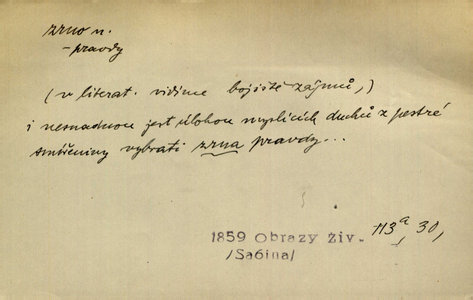 zrno n.
– pravdy
(v literat. vidíme bojiště zájmů,)
i nesnadnou jest úlohou myslících duchů z pestré
směšeniny vybrati zrna pravdy...
1859 Obrazy Živ. 113a, 30,
/Sabina/